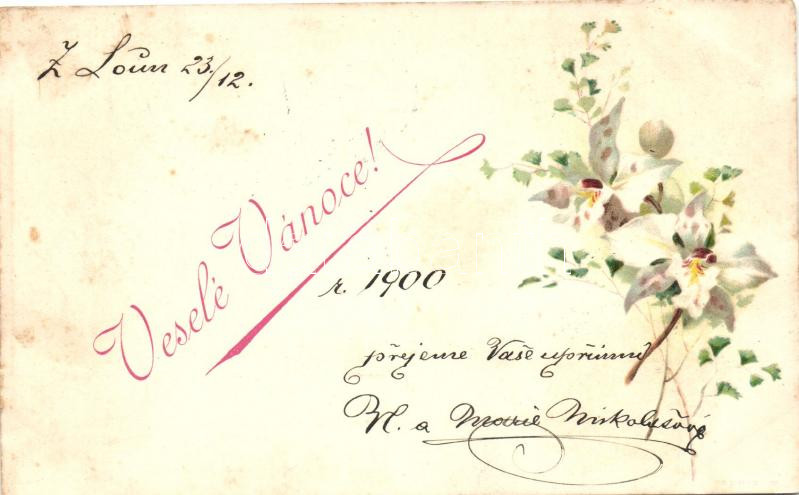 Z Loun 23/12.
Veselé Vánoce!
r. 1900
přejeme Vaše upřimní
a Marie Mikolušová